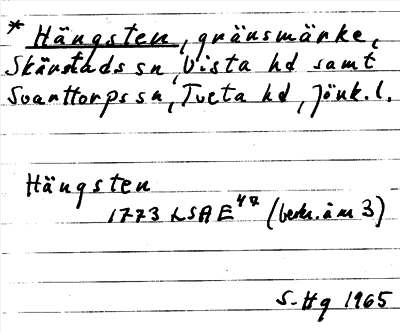 * Hängsten, gränsmärke,
Skärstads sn, Vista hd samt
Svarttorps sn, Tveta hd, Jönk. l.
Hängsten
1773 LSA E 47 (beskr. å nr 3)
S. Hg 1965